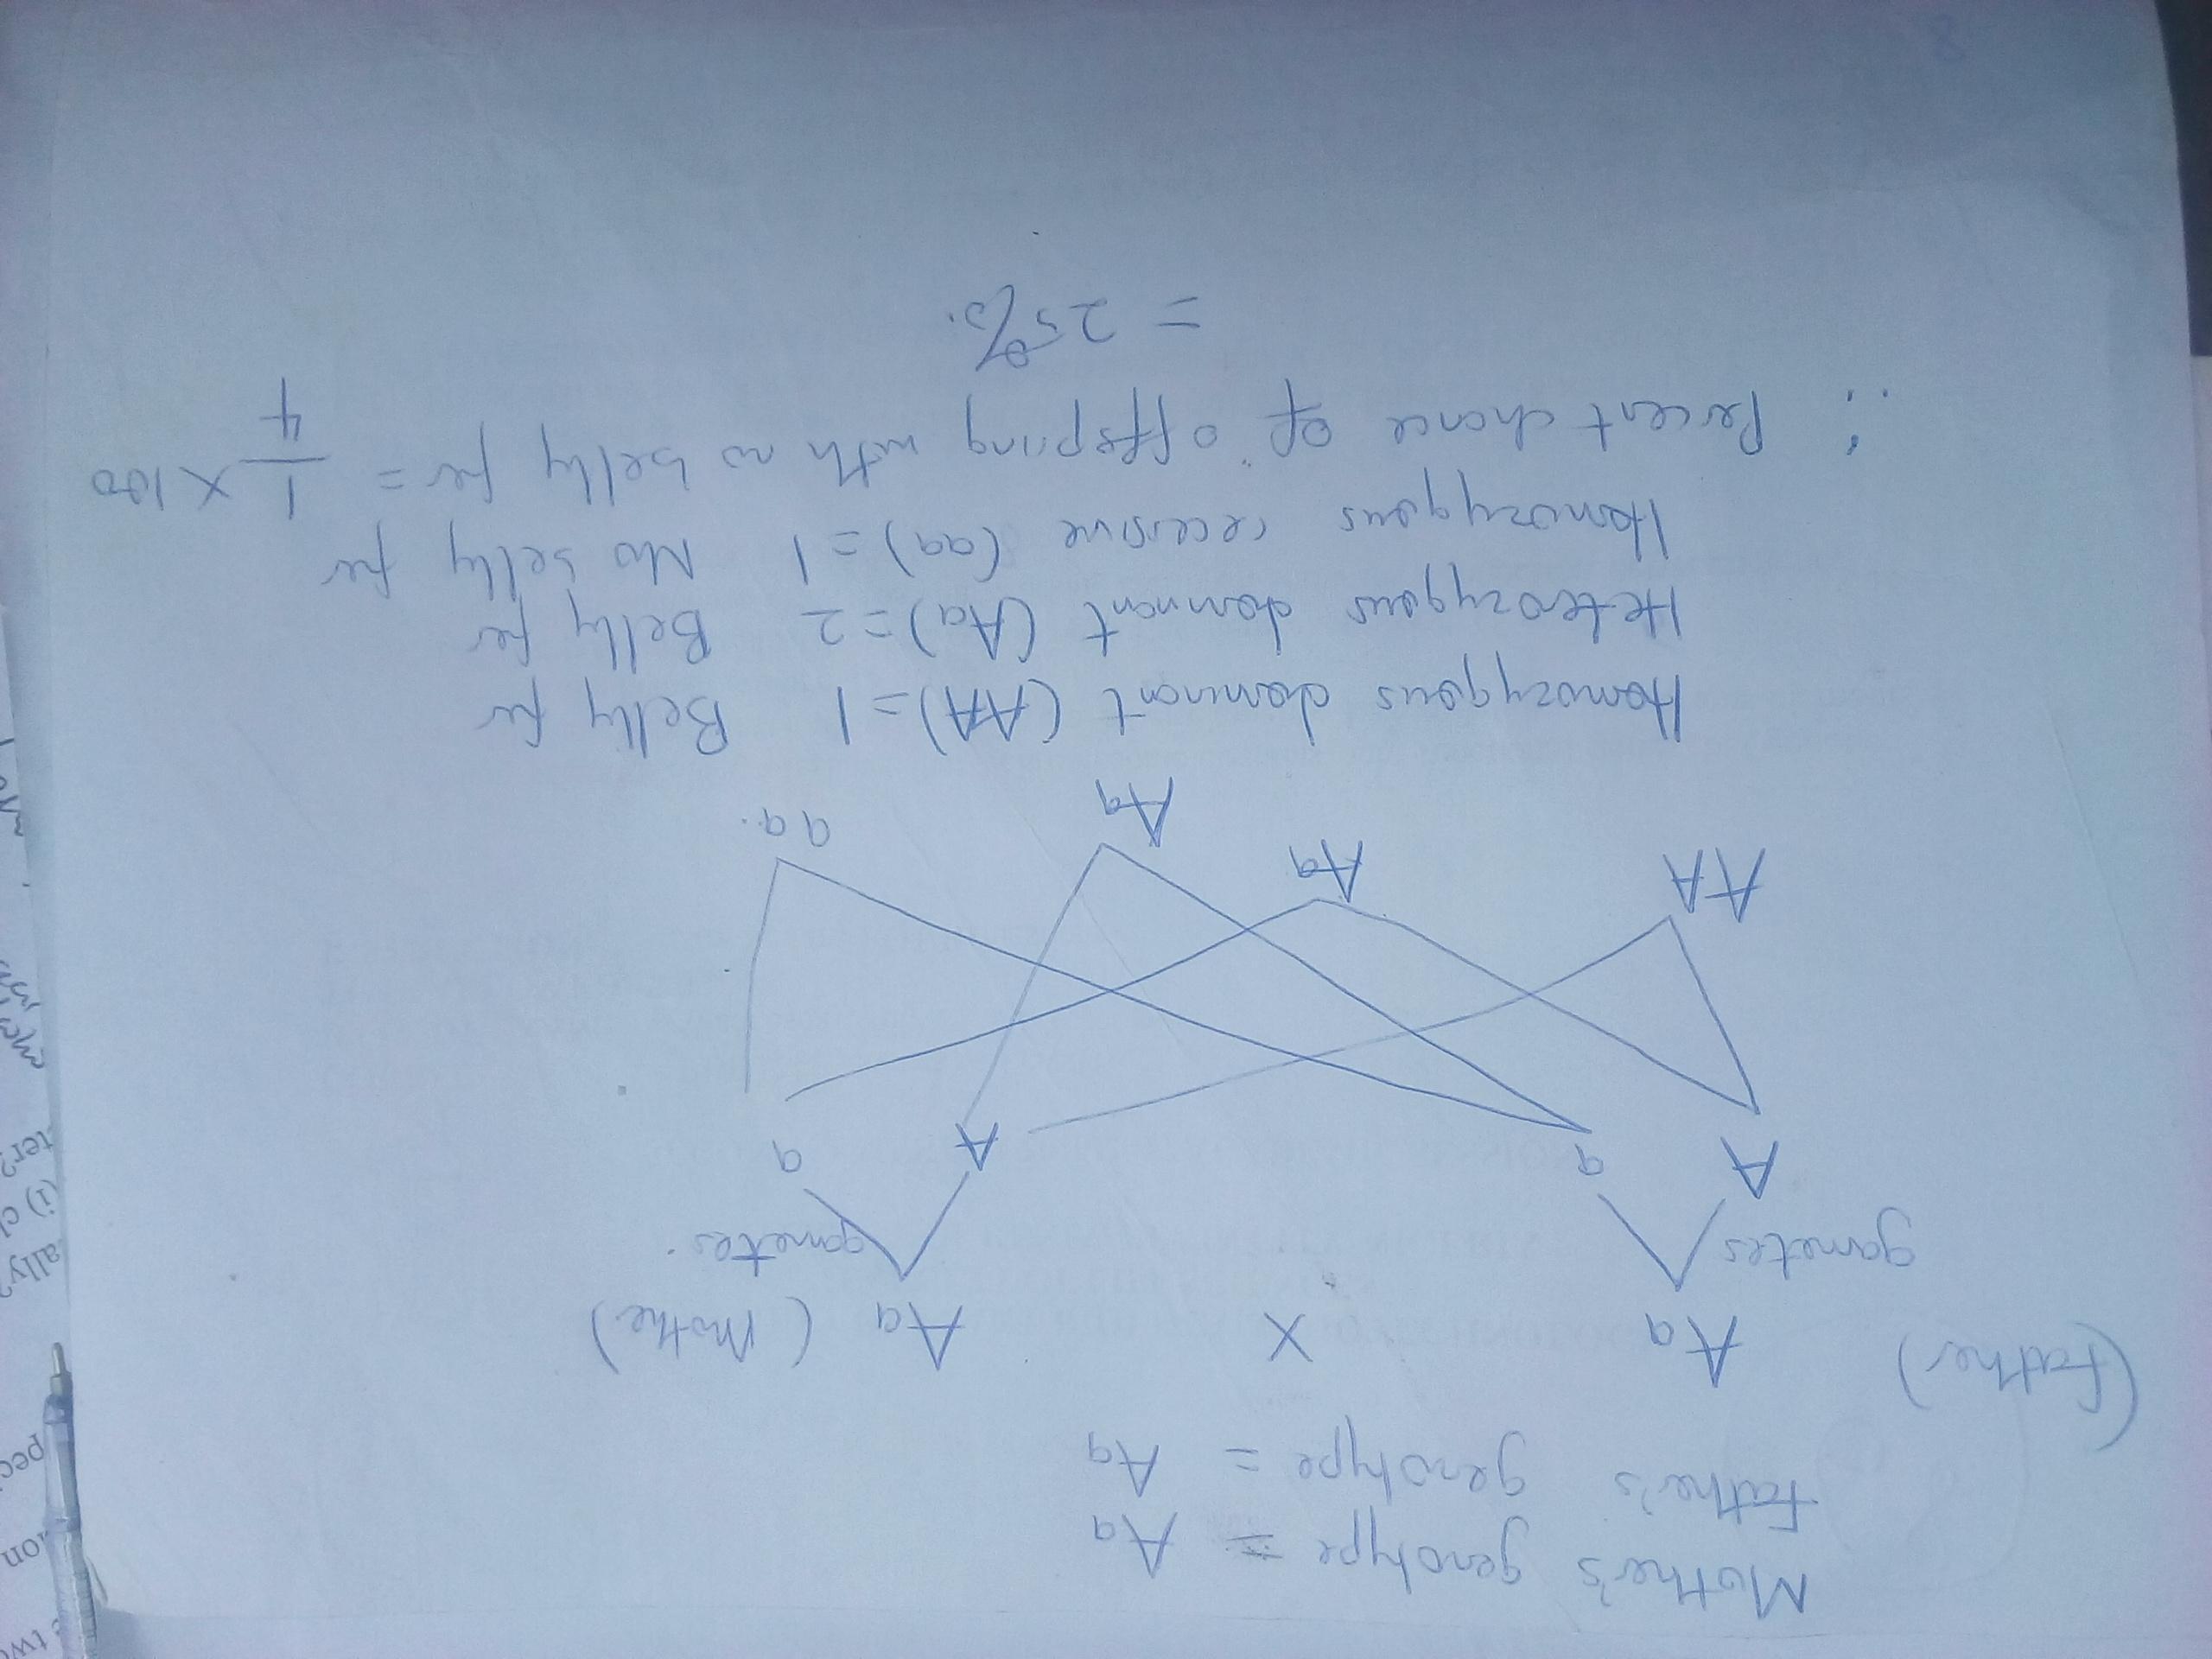 Mother's genotype = Aa
Father's genotype = Aa
(Father) Aa X Aa (Mother)
gametes gametes.
A a A a
AA Aa Aa aa.
Homozygous dominant (AA) = 1 Belly fur
Heterozygous dominant (Aa) = 2 Belly fur
Homozygous recessive (aa) = 1 No belly fur
∴ Percent chance of offspring with no belly fur = 1/4 × 100
= 25%.
8